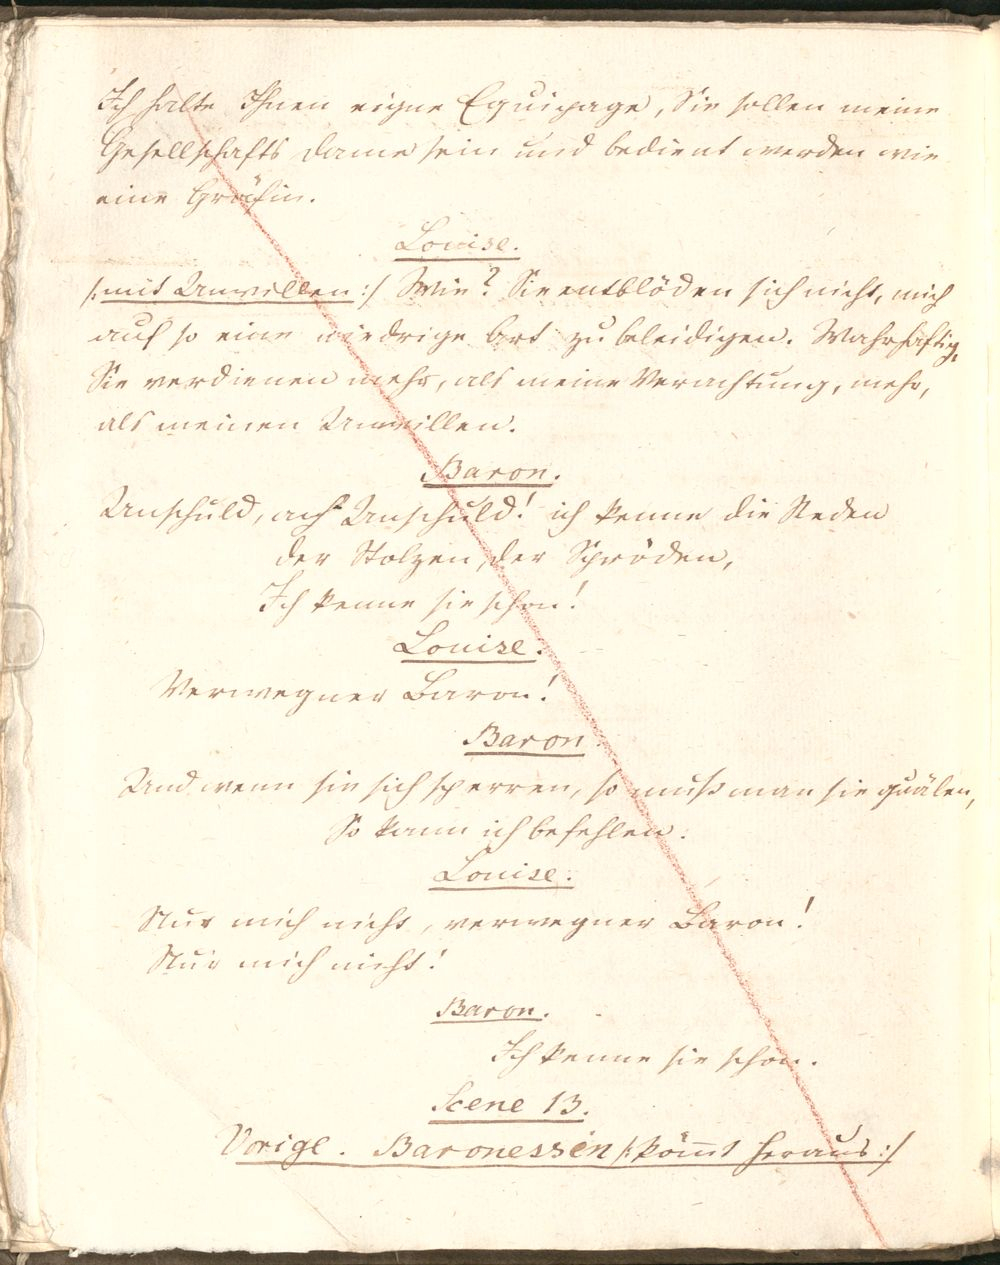 Ich halte Ihnen eigne Equipage, Sie sollen meine
Gesellschafts Dame sein und bedient werden wie
eine Gräfin.
Louise.
/:mit Unwillen:/ Wie? Sie entblöden sich nicht, mich
auf so eine niedrige Art zu beleidigen. Wahrhaftig,
Sie verdienen mehr, als meine Verachtung, mehr,
als meinen Unwillen.
Baron.
Unschuld, ach Unschuld! ich kenne die Reden
der Stolzen, der Spröden,
Ich kenne sie schon!
Louise.
Verwegner Baron!
Baron
Und wenn sie sich sperren, so muß man sie quälen,
So kann ich befehlen.
Louise.
Nur mich nicht, verwegner Baron!
Nur mich nicht!
Baron.
Ich kenne sie schon.
Scene 13.
Vorige. Baronessen /:kom̅t heraus:/